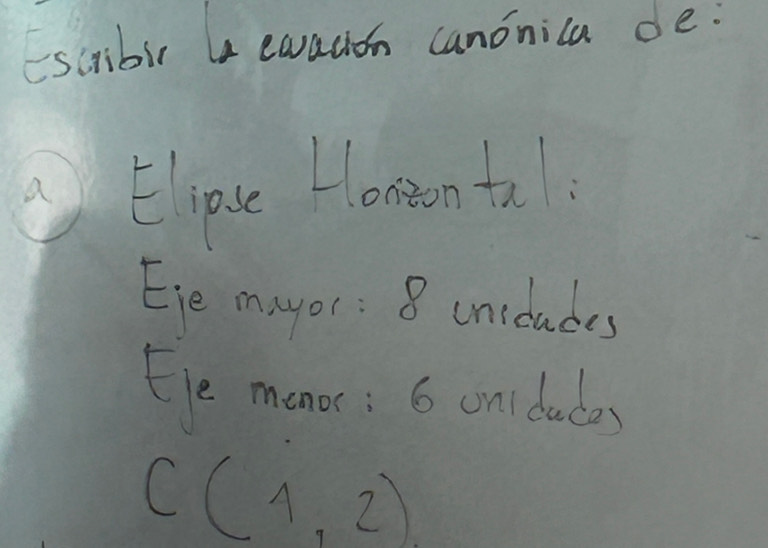 Escribir la ecuación canónica de:
a Elipse Horizontal:
Eje mayor: 8 unidades
Eje menor: 6 unidades
C(1,2)